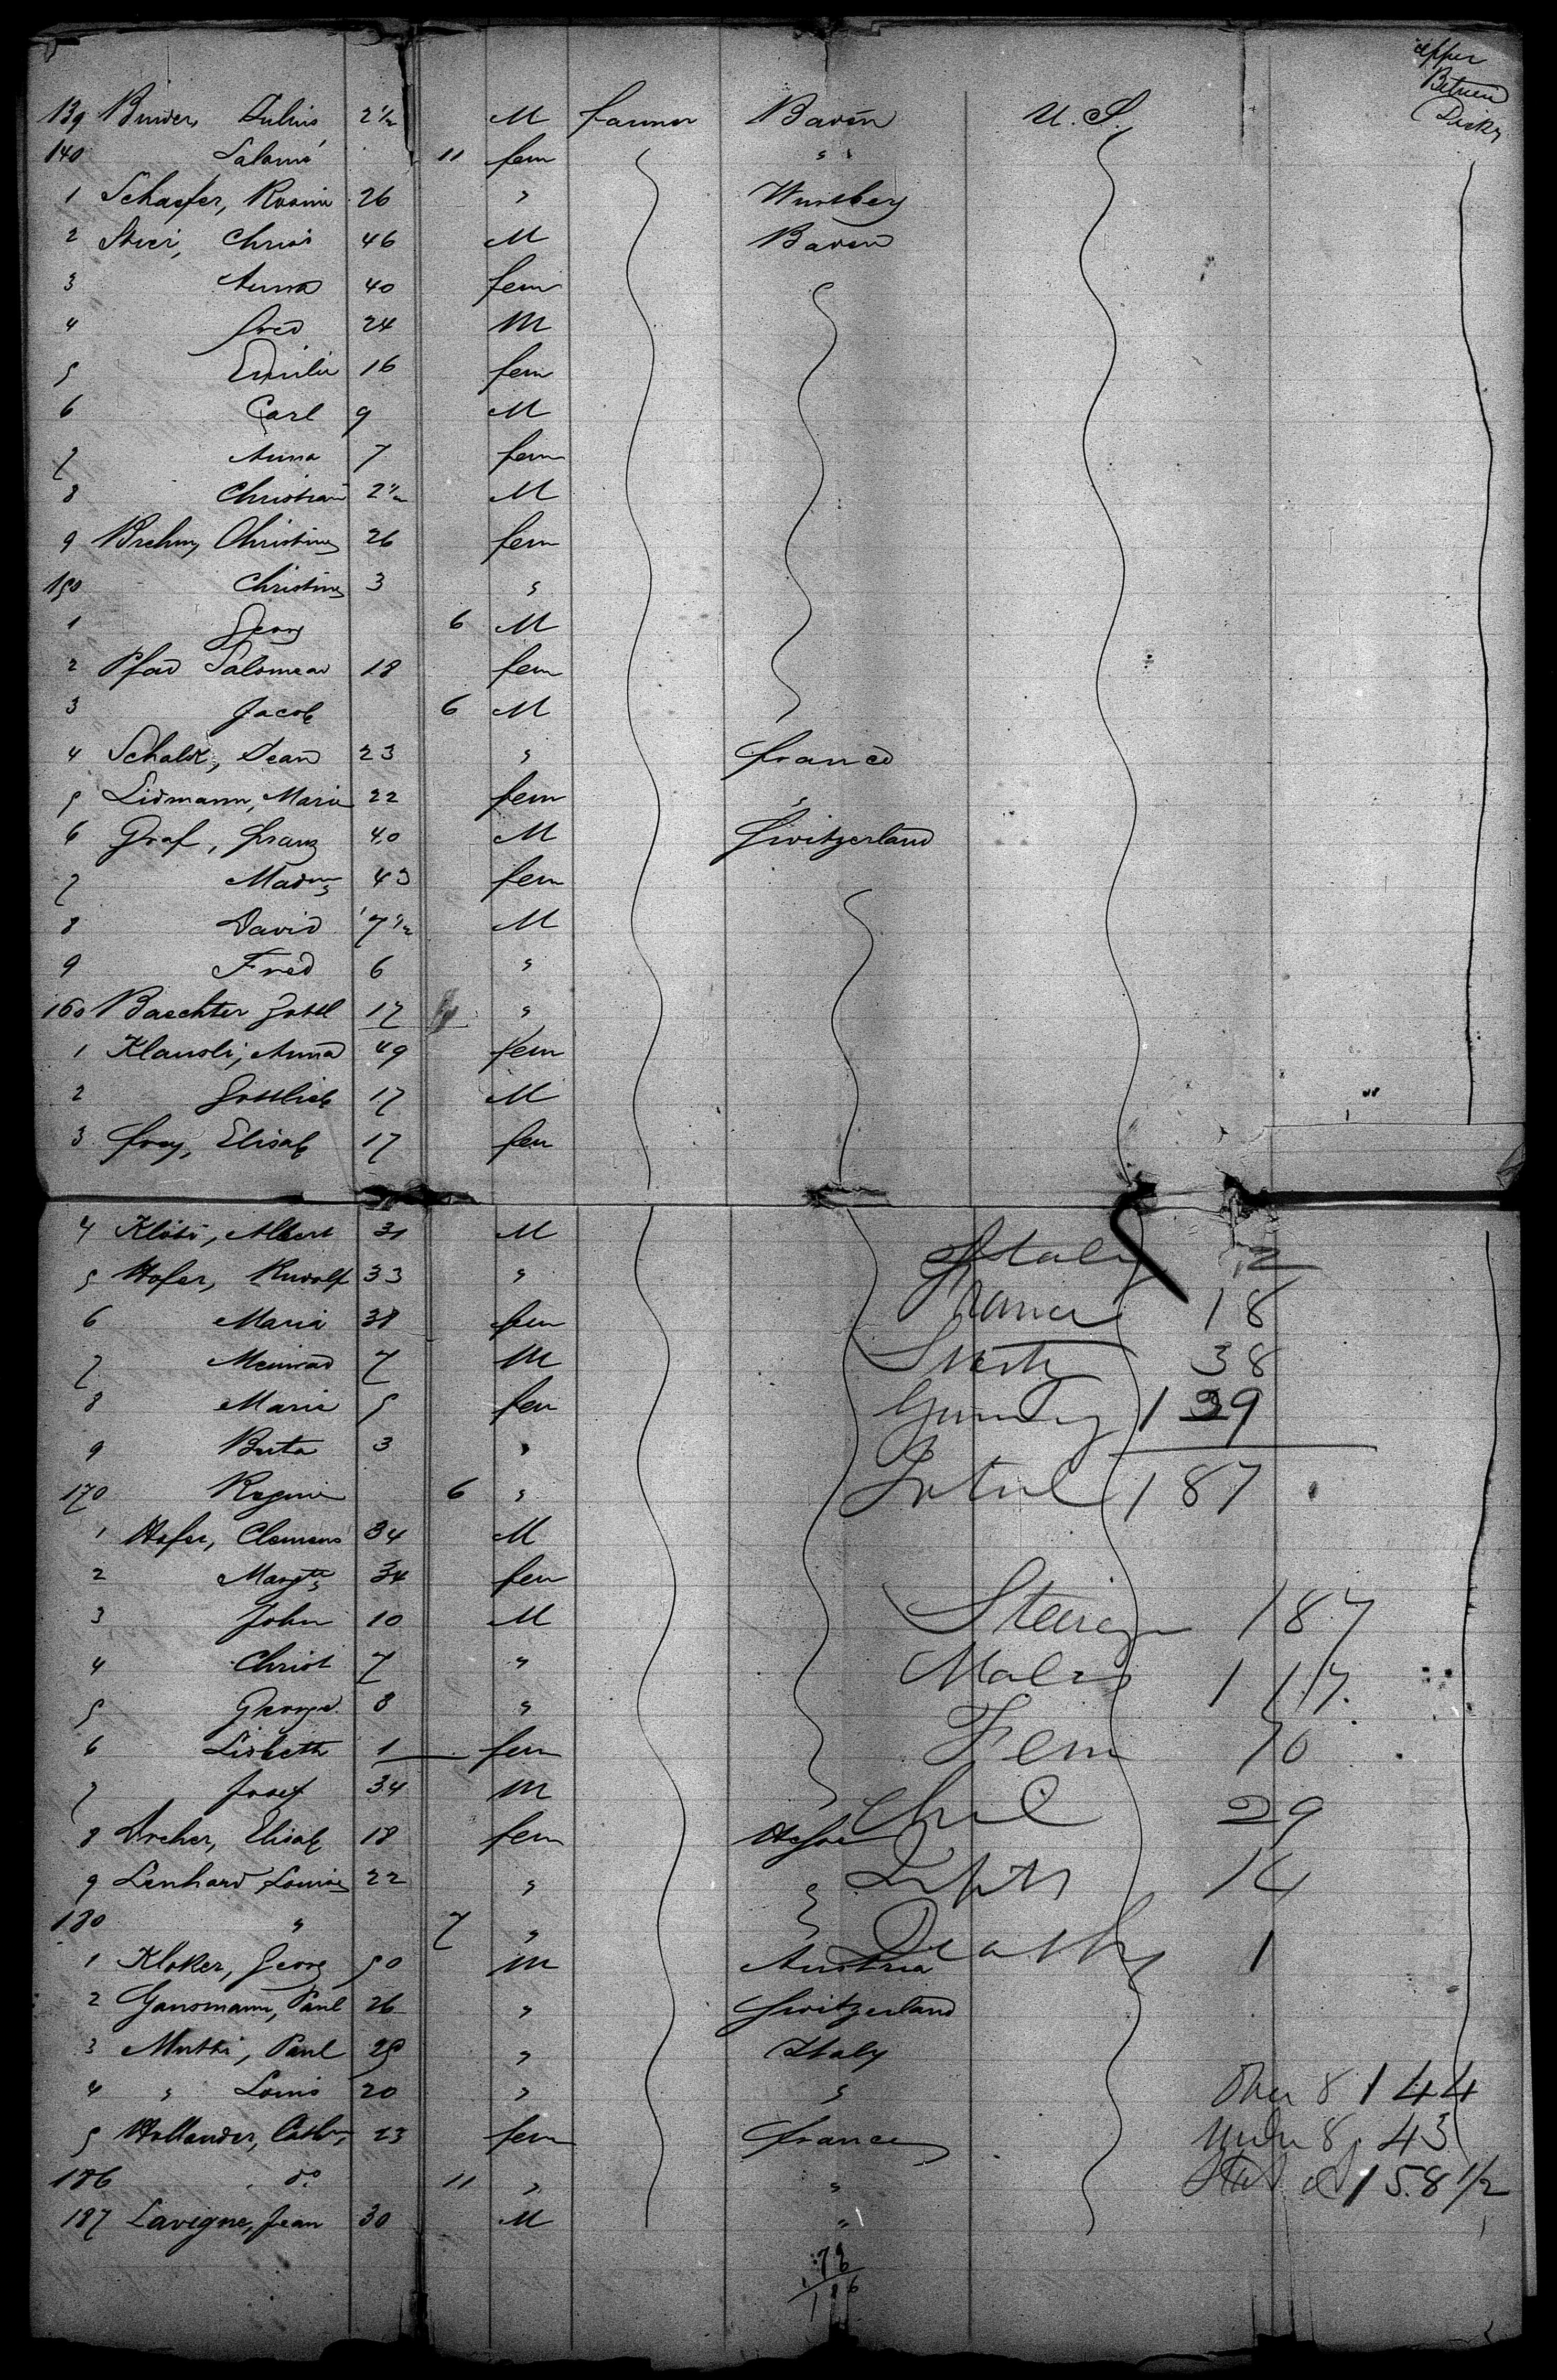 upper
Between
Decks
139 Binder, Julius 2 1/2 M farmer Baden U. S.
140 Salomé 11 fem " "
1 Schaefer, Rosine 26 " Wurtberg
2 Stier, Christ 46 M Baden
3 Anna 40 fem
4 Fred 24 M
5 Emilie 16 fem
6 Carl 9 M
7 Anna 7 fem
8 Christian 2 1/2 M
9 Brehm, Christine 26 fem
150 Christine 3 "
1 Georg 6 M
2 Pfad Salomea 18 fem
3 Jacob 6 M
4 Schalk, Jean 23 " France
5 Lidmann, Maria 22 fem "
6 Graf, Franz 40 M Switzerland
7 43 fem
8 David 7 1/2 M
9 Fred 6 "
160 Baechter Gottl 17 "
1 Klausli, Anna 49 fem
2 Gottlieb 17 M
3 Frey, Elisab 17 fem
4 Klöti, Albert 31 M Italy 2
5 Hofer, Rudolf 33 " France 18
6 Maria 38 fem
7 Meinrad 7 M 38
8 Marie 5 fem Germany 139
9 Berta 3 "
170 Regina 6 " Total 187
1 Hofer, Clemens 34 M
2 Margth 34 fem
3 John 10 M Steerage 187
4 Christ 7 " Males 117
5 George 8 "
6 Lisbeth 1 fem Fem 70
7 Josef 34 M
8 Dreher, Elisab 18 fem Chil 29
9 Lenhard Louise 22 " 14
180 " 7 " Deaths 1
1 Kloker, Georg 50 M Austria
2 Gansmann, Paul 26 " Switzerland
3 Mutti, Paul 25 " Italy
4 " Louis 20 " "
5 Hollander, Cath 23 fem France
186 do 11 " "
187 Lavigne, Jean 30 M "
Over 8 144
Under 8 43
158 1/2